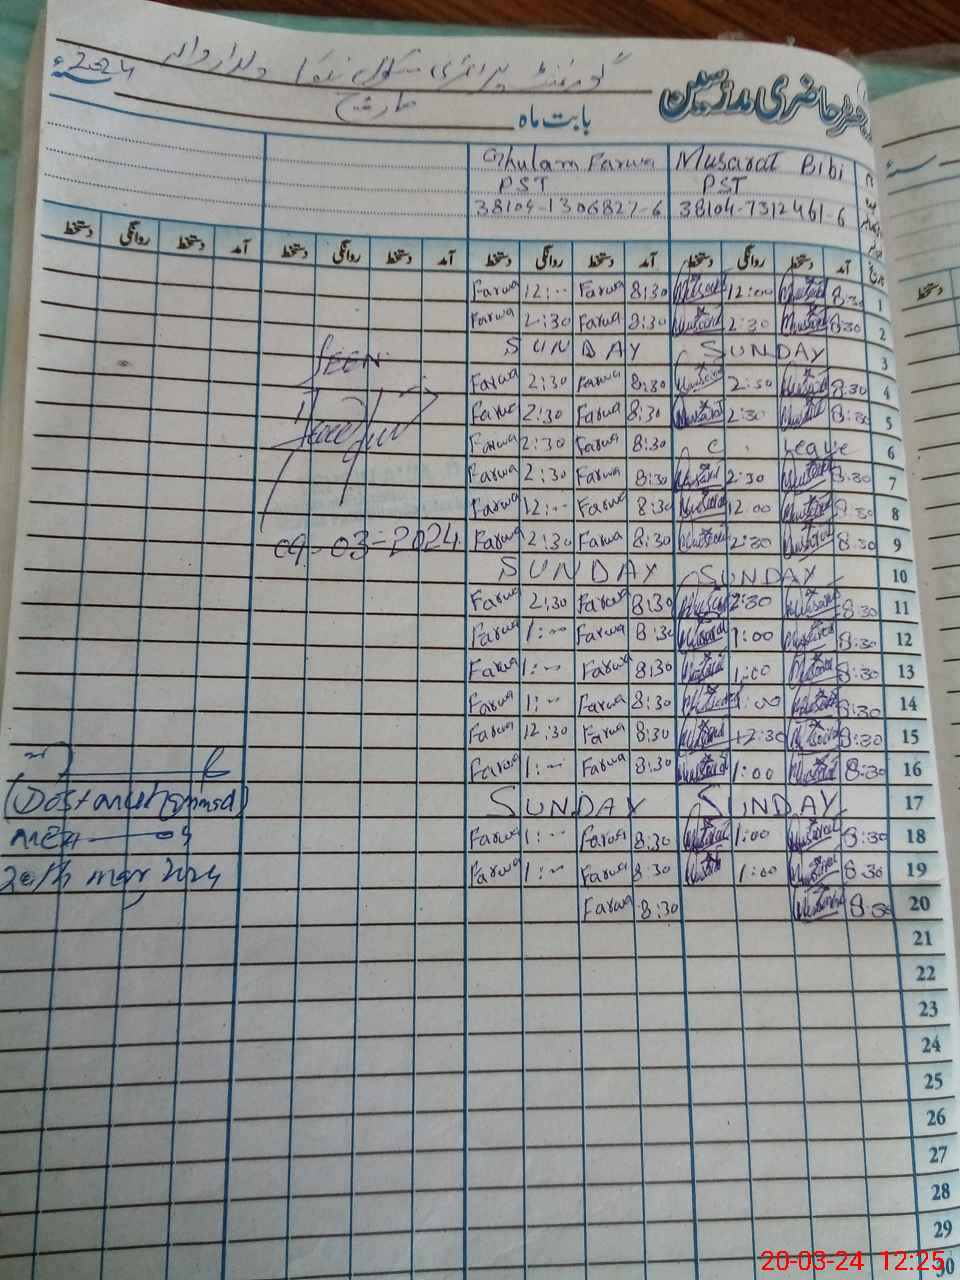 2024ء گورنمنٹ پرائمری سکول
رجسٹر حاضری مدرسین
بابت ماہ مارچ
Ghulam Farwa Musarat Bibi
PST PST
38104-1306827-6 38104-7312461-6
تاریخ آمد دستخط روانگی دستخط آمد دستخط روانگی دستخط آمد دستخط روانگی دستخط آمد دستخط روانگی دستخط
Farwa 12:-- Farwa 8:30 Musarat 12:00 Musarat 8:30 1
Farwa 2:30 Farwa 8:30 Musarat 2:30 Musarat 8:30 2
SUNDAY SUNDAY 3
SEEN
Farwa 2:30 Farwa 8:30 Musarat 2:30 Musarat 8:30 4
Farwa 2:30 Farwa 8:30 Musarat 2:30 Musarat 8:30 5
Farwa 2:30 Farwa 8:30 C. Leave 6
Farwa 2:30 Farwa 8:30 Musarat 2:30 Musarat 8:30 7
Farwa 12:-- Farwa 8:30 Musarat 12:00 Musarat 8:30 8
09-03-2024 Farwa 2:30 Farwa 8:30 Musarat 2:30 Musarat 8:30 9
SUNDAY SUNDAY 10
Farwa 2:30 Farwa 8:30 Musarat 2:30 Musarat 8:30 11
Farwa 1:-- Farwa 8:30 Musarat 1:00 Musarat 8:30 12
Farwa 1:-- Farwa 8:30 Musarat 1:00 Musarat 8:30 13
Farwa 1:-- Farwa 8:30 Musarat 1:00 Musarat 8:30 14
Farwa 12:30 Farwa 8:30 Musarat 12:30 Musarat 8:30 15
Farwa 1:-- Farwa 8:30 Musarat 1:00 Musarat 8:30 16
SUNDAY SUNDAY 17
MEA 09 Farwa 1:-- Farwa 8:30 Musarat 1:00 Musarat 8:30 18
20th mar 2024 Farwa 1:-- Farwa 8:30 Musarat 1:00 Musarat 8:30 19
Farwa 8:30 Musarat 8:30 20
21
22
23
24
25
26
27
28
29
30
20-03-24 12:25
دستخط